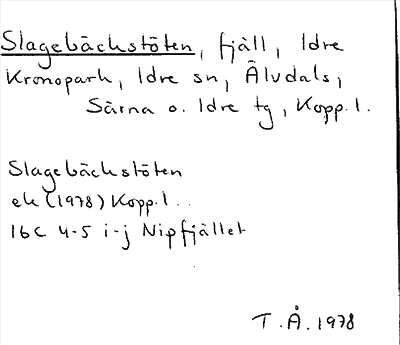 Slagebäckstöten, fjäll, Idre
Kronopark, Idre sn, Älvdals,
Särna o. Idre tg, Kopp. l.
Slagebäckstöten
ek (1978) Kopp. l.
16C 4-5 i-j Nipfjället
T.Å. 1978